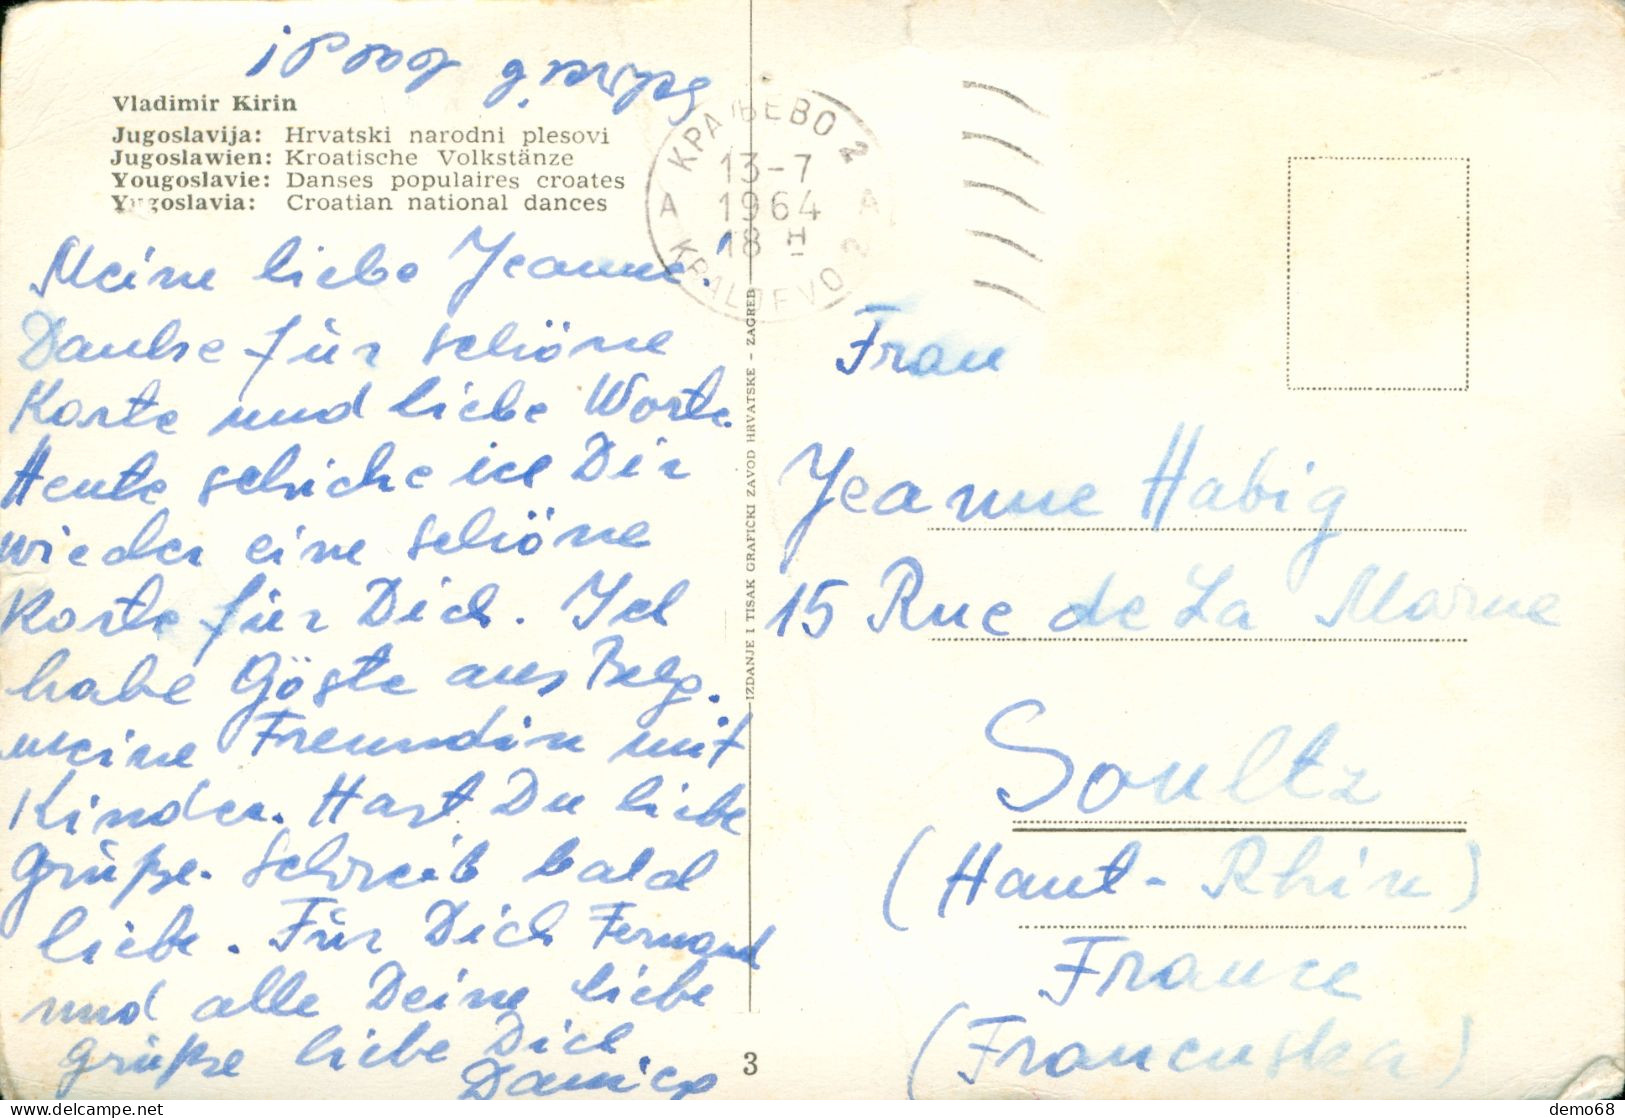 Vladimir Kirin
Jugoslavija: Hrvatski narodni plesovi
Jugoslawien: Kroatische Volkstänze
Yougoslavie: Danses populaires croates
Yugoslavia: Croatian national dances
КРАЉЕВО 2
13-7
1964
18 H
A A
KRALJEVO 2
Meine liebe Jeanne.
Danke für schöne
Karte und liebe Worte.
Heute schicke ich Dir
wieder eine schöne
Karte für Dich. Ich
habe Gäste aus Belg.
meine Freundin mit
Kinder. Hast Du liebe
grüße. Schreib bald
liebe. Für Dich Fernand
und alle Deine liebe
grüße liebe Dich.
Danica
IZDANJE I TISAK GRAFIČKI ZAVOD HRVATSKE - ZAGREB
3
Frau
Jeanne Habig
15 Rue de La Marne
Soultz
(Haut-Rhin)
France
(Francuska)
demo68